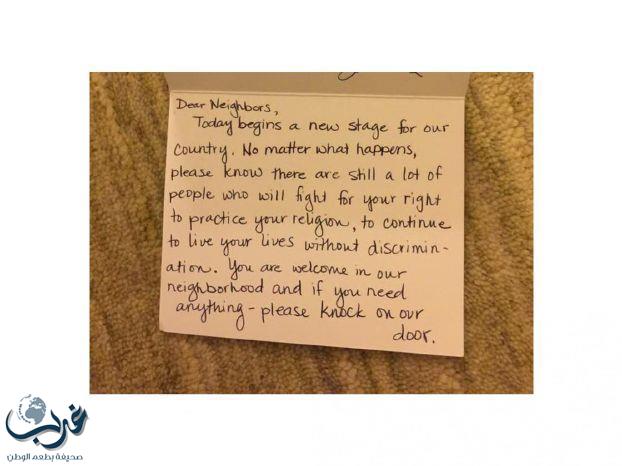 Dear Neighbors,
Today begins a new stage for our
country. No matter what happens,
please know there are still a lot of
people who will fight for your right
to practice your religion, to continue
to live your lives without discrimin-
ation. You are welcome in our
neighborhood and if you need
anything - please knock on our
door.
غرب
صحيفة بطعم الوطن